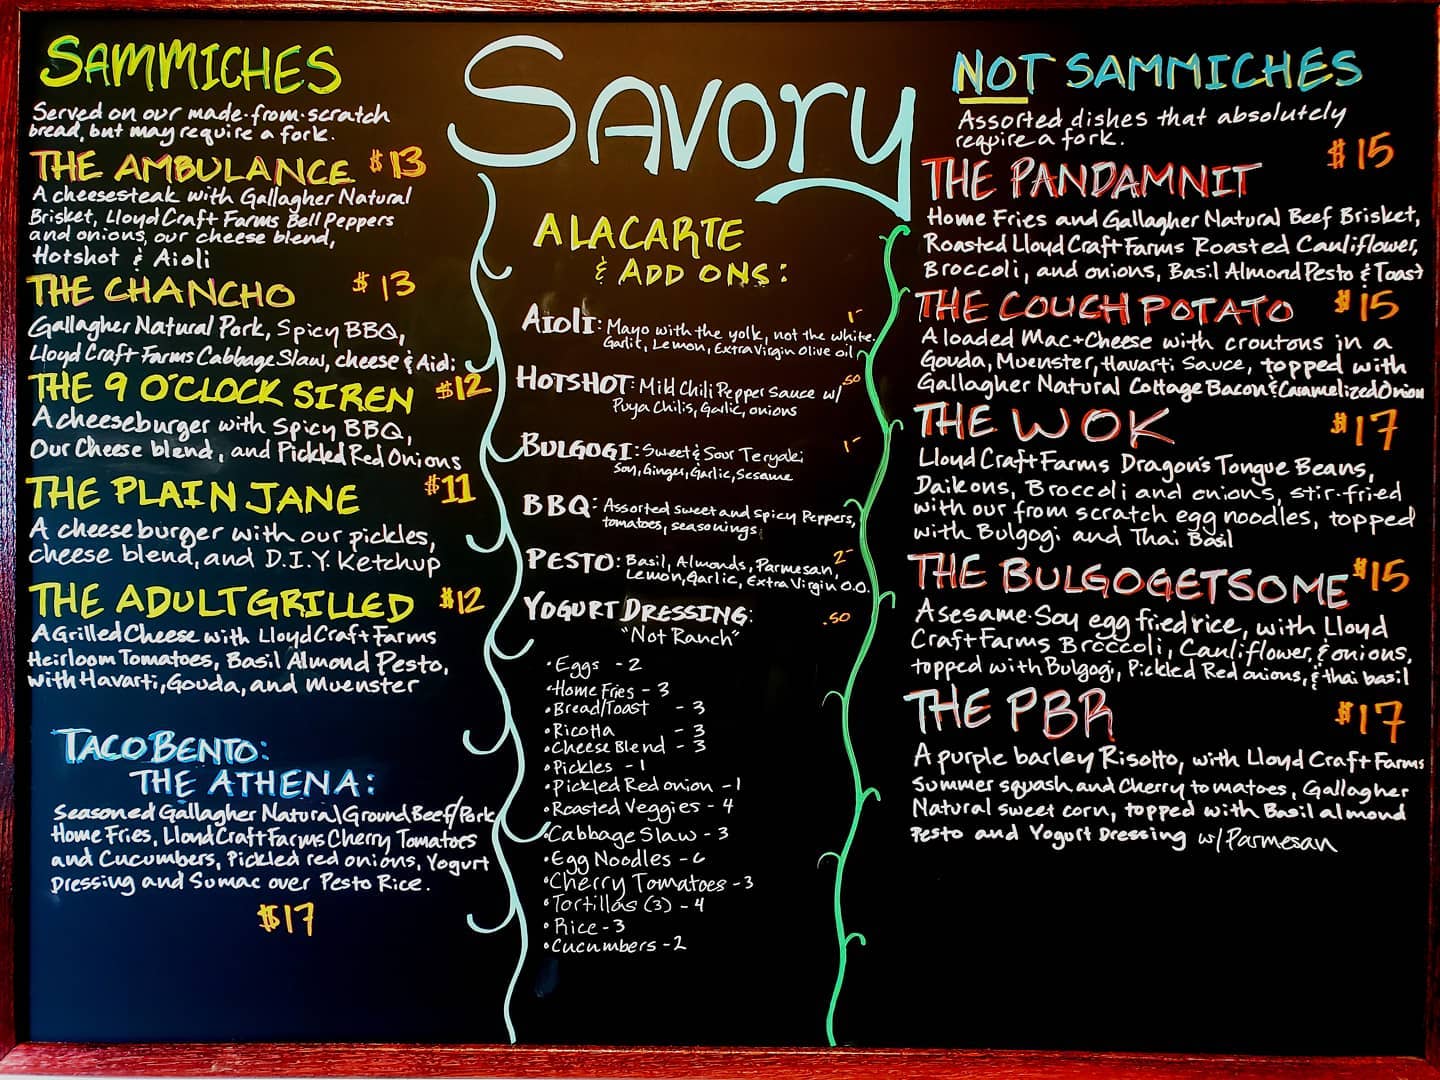 SAMMICHES
Served on our made-from-scratch
bread, but may require a fork.
THE AMBULANCE $13
A cheesesteak with Gallagher Natural
Brisket, Lloyd Craft Farms Bell Peppers
and onions, our cheese blend,
Hotshot & Aioli
THE CHANCHO $13
Gallagher Natural Pork, Spicy BBQ,
Lloyd Craft Farms Cabbage Slaw, cheese & Aioli
THE 9 O'CLOCK SIREN $12
A cheeseburger with Spicy BBQ,
Our Cheese blend, and Pickled Red Onions
THE PLAIN JANE $11
A cheeseburger with our pickles,
cheese blend, and D.I.Y. Ketchup
THE ADULT GRILLED $12
A Grilled Cheese with Lloyd Craft Farms
Heirloom Tomatoes, Basil Almond Pesto,
with Havarti, Gouda, and Muenster
TACO BENTO:
THE ATHENA:
Seasoned Gallagher Natural Ground Beef/Pork
Home Fries, Lloyd Craft Farms Cherry Tomatoes
and Cucumbers, Pickled red onions, Yogurt
Dressing and Sumac over Pesto Rice.
$17
SAVORY
ALACARTE
& ADD ONS:
AIOLI: Mayo with the yolk, not the white. 1-
Garlic, Lemon, Extra Virgin Olive oil
HOTSHOT: Mild Chili Pepper Sauce w/ .50
Puya Chilis, Garlic, onions
BULGOGI: Sweet & Sour Teryaki 1-
Soy, Ginger, Garlic, Sesame
BBQ: Assorted sweet and spicy Peppers,
tomatoes, seasonings
PESTO: Basil, Almonds, Parmesan, 2-
Lemon, Garlic, Extra Virgin O.O.
YOGURT DRESSING: .50
"Not Ranch"
• Eggs - 2
• Home Fries - 3
• Bread/Toast - 3
• Ricotta - 3
• Cheese Blend - 3
• Pickles - 1
• Pickled Red onion - 1
• Roasted Veggies - 4
• Cabbage Slaw - 3
• Egg Noodles - 6
• Cherry Tomatoes - 3
• Tortillas (3) - 4
• Rice - 3
• Cucumbers - 2
NOT SAMMICHES
Assorted dishes that absolutely
require a fork.
THE PANDAMNIT $15
Home Fries and Gallagher Natural Beef Brisket,
Roasted Lloyd Craft Farms Roasted Cauliflower,
Broccoli, and onions, Basil Almond Pesto & Toast
THE COUCH POTATO $15
A loaded Mac+Cheese with croutons in a
Gouda, Muenster, Havarti Sauce, topped with
Gallagher Natural Cottage Bacon & Caramelized Onion
THE WOK $17
Lloyd Craft Farms Dragon's Tongue Beans,
Daikons, Broccoli and onions, stir-fried
with our from scratch egg noodles, topped
with Bulgogi and Thai Basil
THE BULGOGETSOME $15
A sesame-Soy egg fried rice, with Lloyd
Craft Farms Broccoli, Cauliflower, & onions,
topped with Bulgogi, Pickled Red onions, & thai basil
THE PBR $17
A purple barley Risotto, with Lloyd Craft Farms
Summer squash and Cherry tomatoes, Gallagher
Natural sweet corn, topped with Basil almond
Pesto and Yogurt Dressing w/Parmesan